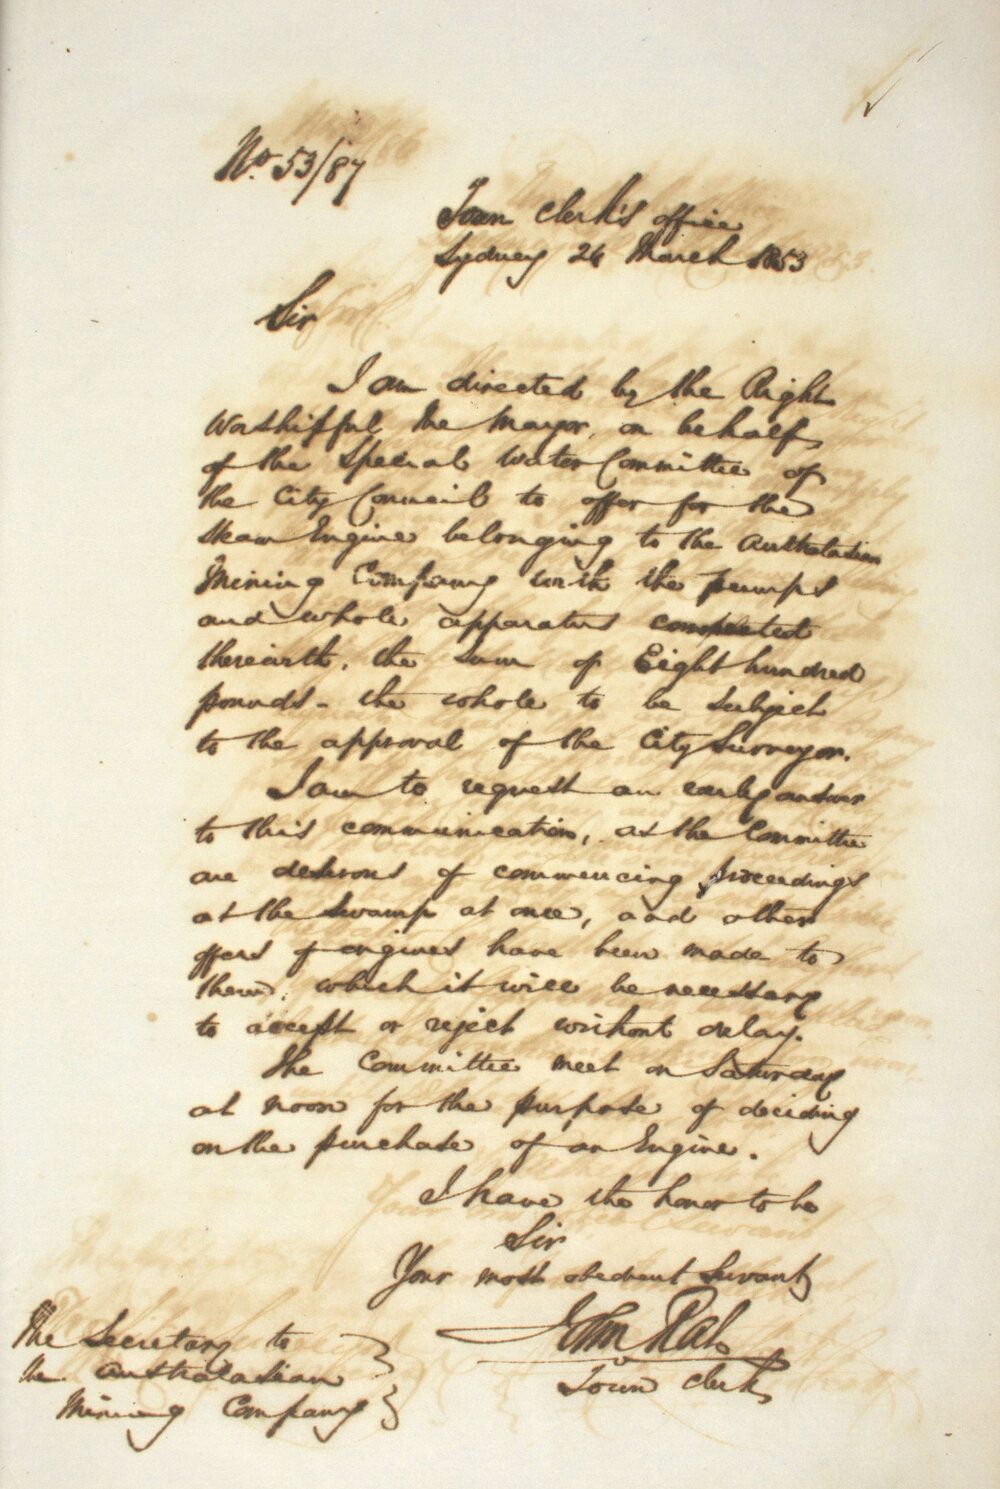 No. 53/87
Town Clerk's office
Sydney 24 March 1853
Sir
I am directed by the Right
Worshipful the Mayor, on behalf
of the Special Water Committee of
the City Council to offer for the
Steam Engine belonging to the Australasian
Mining Company with the pumps
and whole apparatus connected
therewith, the sum of Eight hundred
pounds - the whole to be subject
to the approval of the City Surveyor.
I am to request an early answer
to this communication, as the Committee
are desirous of commencing proceedings
at the Swamp at once, and other
offers of engines have been made to
them, which it will be necessary
to accept or reject without delay.
The Committee meet on Saturday
at noon for the purpose of deciding
on the purchase of an Engine.
I have the honor to be
Sir
Your most obedient Servant
John Rae
Town Clerk
The Secretary to
the Australasian
Mining Company